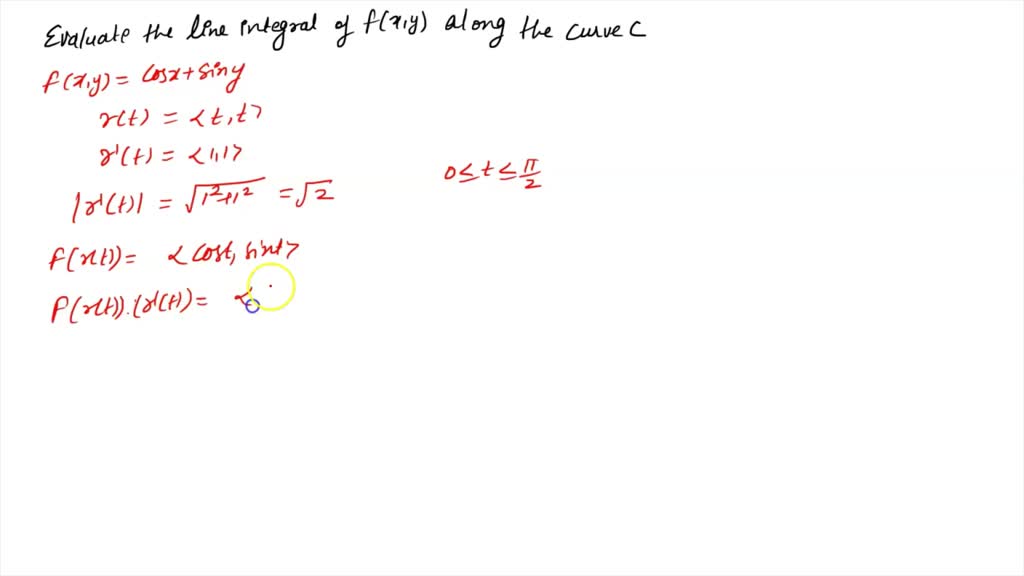 Evaluate the line integral of f(x,y) along the curve C
f(x,y) = cosx + siny
r(t) = <t,t>
r'(t) = <1,1>
0 ≤ t ≤ π/2
|r'(t)| = √1²+1² = √2
f(r(t)) = <cost, sint>
f(r(t)).(r'(t)) = <